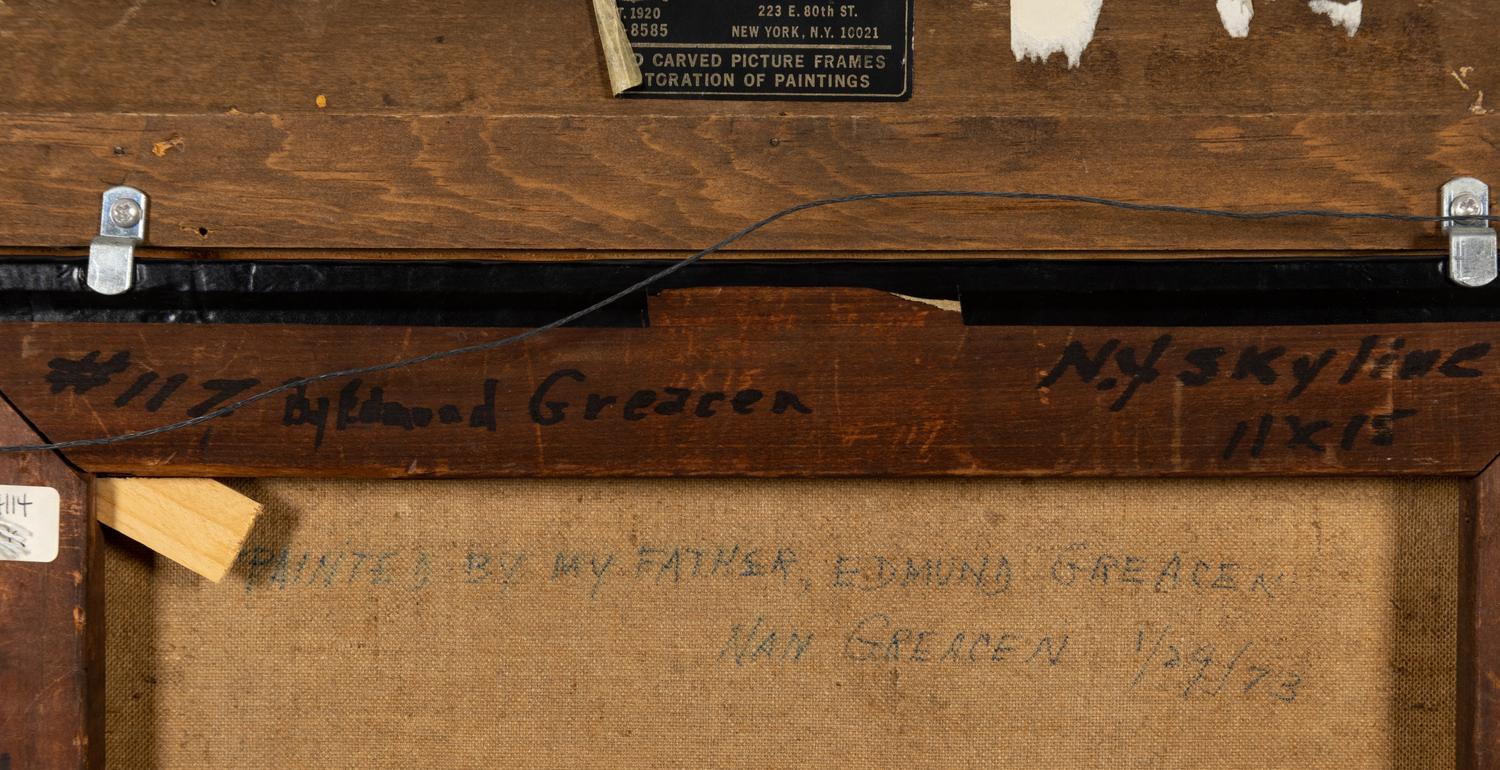 T. 1920 223 E. 80th ST.
8585 NEW YORK, N.Y. 10021
D CARVED PICTURE FRAMES
TORATION OF PAINTINGS
#117 by Edmund Greacen N.Y skyline
11x15
4114
PAINTED BY MY FATHER, EDMUND GREACEN
NAN GREACEN 1/29/73